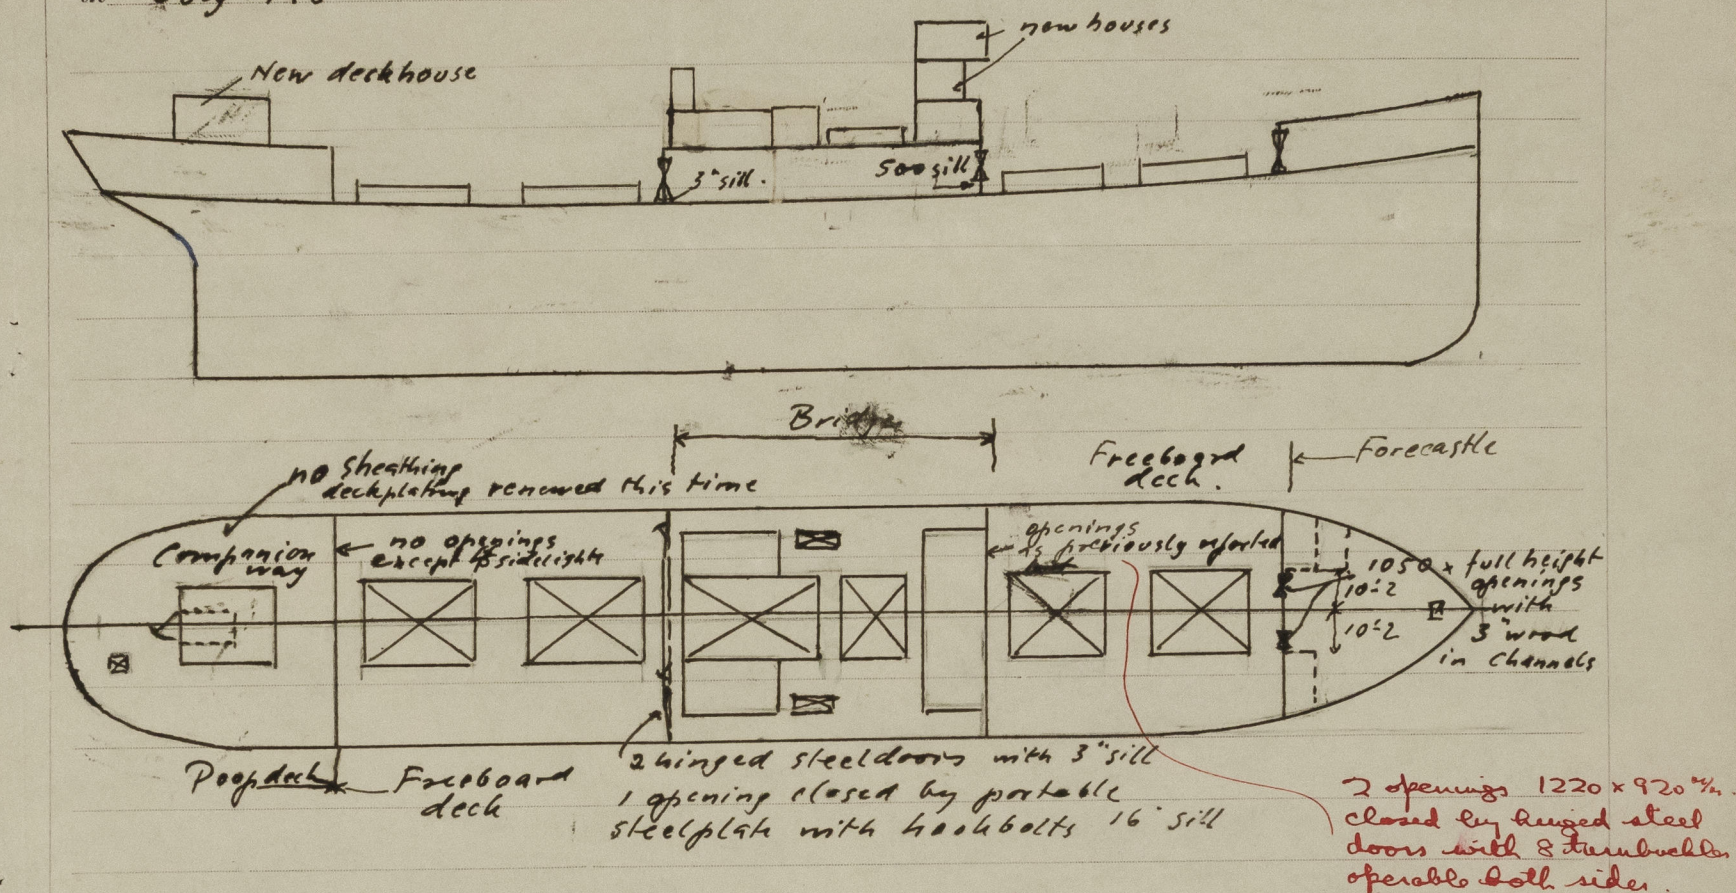 new houses
New deckhouse
3" sill.
500 sill
Bridge
Freeboard
deck.
Forecastle
no sheathing
deckplating renewed this time
Companion
way
no openings
except sidelights
openings
as previously reported
1050 x full height
openings
with
3" wood
in channels
10'-2
10'-2
Poopdeck
Freeboard
deck
2 hinged steeldoors with 3" sill
1 opening closed by portable
steelplate with hookbolts 16" sill
2 openings 1220 x 920 m/m.
closed by hinged steel
doors with 8 turnbuckles
operable both sides.